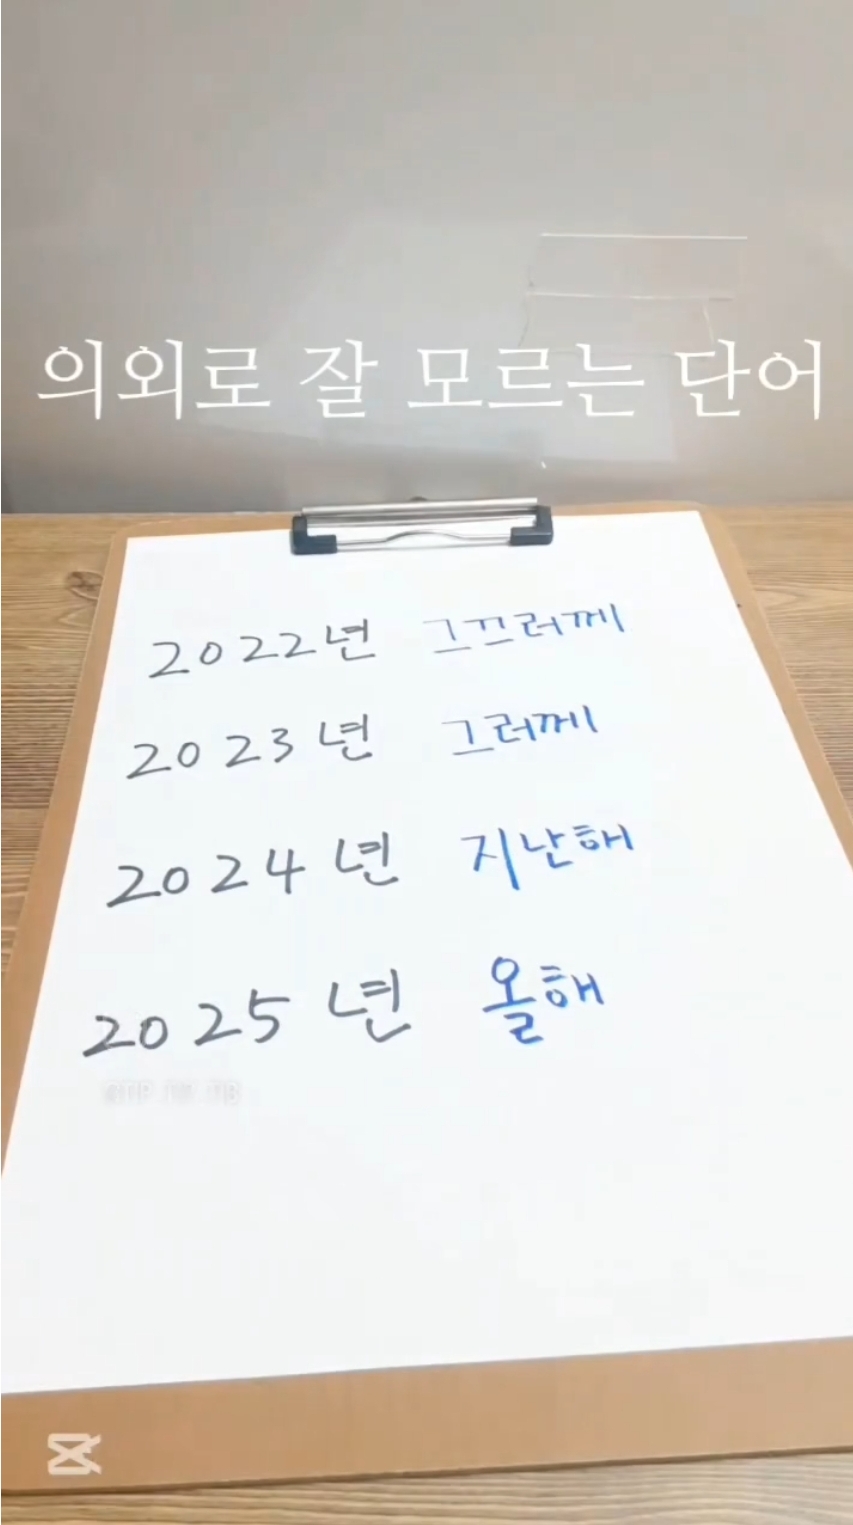 의외로 잘 모르는 단어
2022년 그끄러께
2023년 그러께
2024년 지난해
2025년 올해